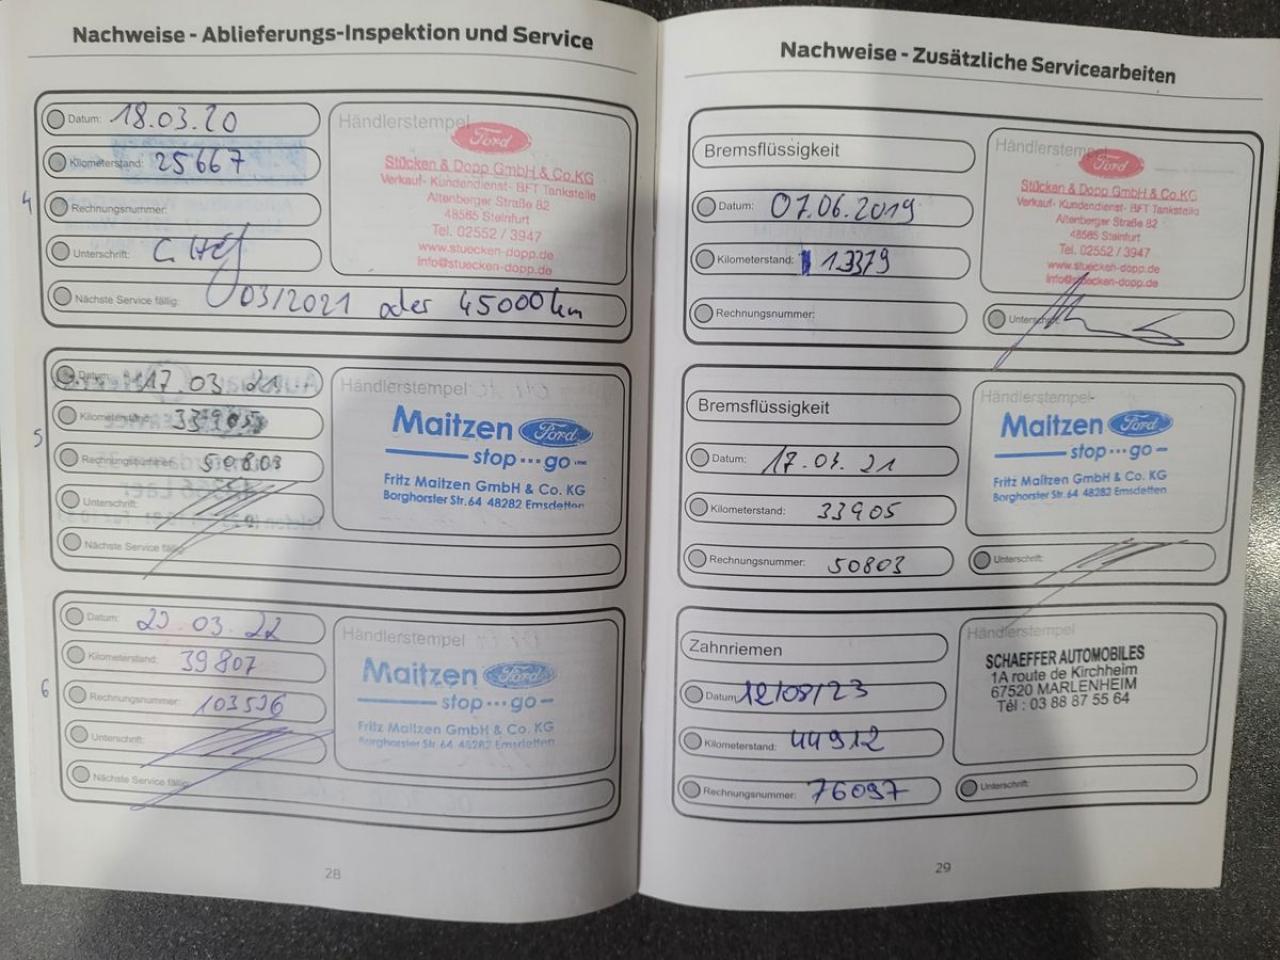 Nachweise - Ablieferungs-Inspektion und Service
4
Datum: 18.03.20
Kilometerstand: 25667
Rechnungsnummer:
Unterschrift:
Nächste Service fällig: 03/2021 oder 45000 km
Händlerstempel
Ford
Stücken & Dopp GmbH & Co.KG
Verkauf- Kundendienst- BFT Tankstelle
Altenberger Straße 82
48565 Steinfurt
Tel. 02552 / 3947
www.stuecken-dopp.de
info@stuecken-dopp.de
5
Datum: 17.03.21
Kilometerstand:
Rechnungsnummer: 50803
Unterschrift:
Nächste Service fällig:
Händlerstempel
Maitzen Ford
stop···go
Fritz Maitzen GmbH & Co. KG
Borghorster Str. 64 48282 Emsdetten
6
Datum:
Kilometerstand: 39807
Rechnungsnummer: 103526
Unterschrift:
Nächste Service fällig:
Händlerstempel
Maitzen Ford
stop···go
Fritz Maitzen GmbH & Co. KG
Borghorster Str. 64 48282 Emsdetten
28
Nachweise - Zusätzliche Servicearbeiten
Bremsflüssigkeit
Datum: 07.06.2019
Kilometerstand: 13379
Rechnungsnummer:
Händlerstempel
Ford
Stücken & Dopp GmbH & Co.KG
Verkauf- Kundendienst- BFT Tankstelle
Altenberger Straße 82
48565 Steinfurt
Tel. 02552 / 3947
www.stuecken-dopp.de
info@stuecken-dopp.de
Unterschrift:
Bremsflüssigkeit
Datum: 17.03.21
Kilometerstand: 33905
Rechnungsnummer: 50803
Händlerstempel
Maitzen Ford
stop···go
Fritz Maitzen GmbH & Co. KG
Borghorster Str. 64 48282 Emsdetten
Unterschrift:
Zahnriemen
Datum: 12/08/23
Kilometerstand: 44912
Rechnungsnummer: 76097
Händlerstempel
SCHAEFFER AUTOMOBILES
1A route de Kirchheim
67520 MARLENHEIM
Tél : 03 88 87 55 64
Unterschrift:
29